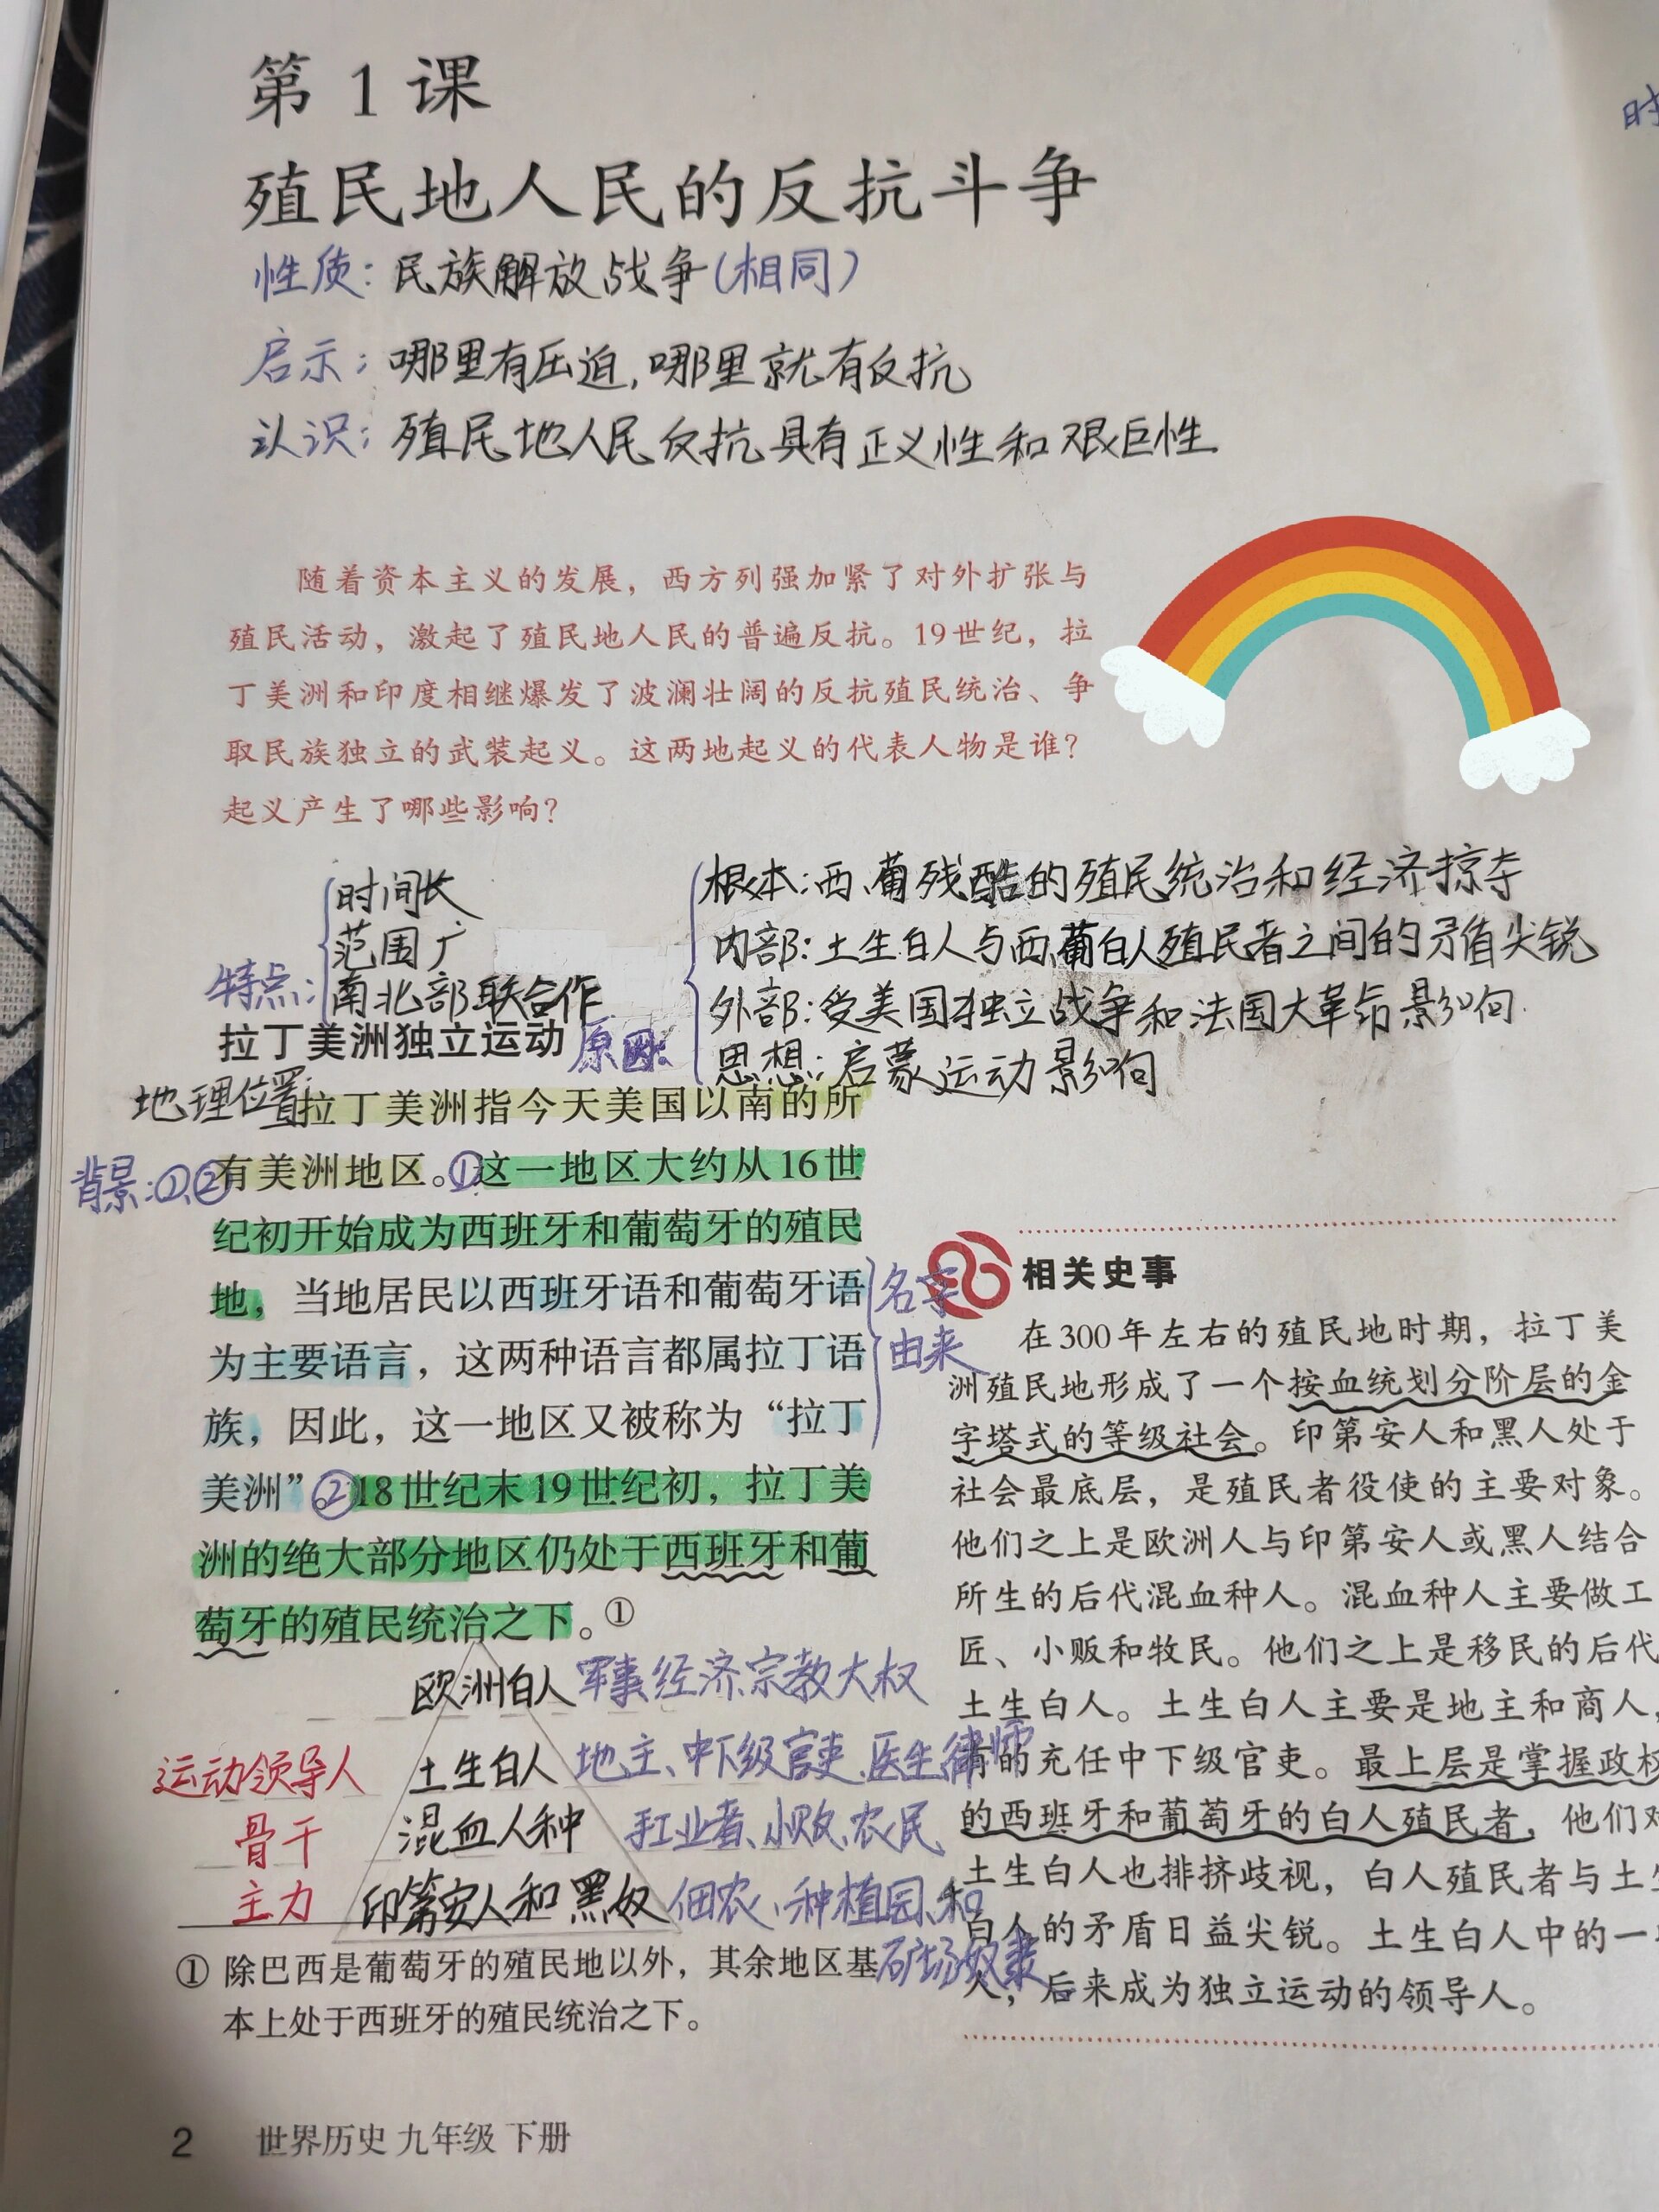 第1课
殖民地人民的反抗斗争
性质：民族解放战争（相同）
启示：哪里有压迫，哪里就有反抗
认识：殖民地人民反抗具有正义性和艰巨性
随着资本主义的发展，西方列强加紧了对外扩张与
殖民活动，激起了殖民地人民的普遍反抗。19世纪，拉
丁美洲和印度相继爆发了波澜壮阔的反抗殖民统治、争
取民族独立的武装起义。这两地起义的代表人物是谁？
起义产生了哪些影响？
特点：
时间长
范围广
南北部联合作
拉丁美洲独立运动
原因：
根本：西、葡残酷的殖民统治和经济掠夺
内部：土生白人与西、葡白人殖民者之间的矛盾尖锐
外部：受美国独立战争和法国大革命影响
思想：启蒙运动影响
地理位置：
拉丁美洲指今天美国以南的所
背景：①、②
有美洲地区。①这一地区大约从16世
纪初开始成为西班牙和葡萄牙的殖民
地，当地居民以西班牙语和葡萄牙语
为主要语言，这两种语言都属拉丁语
族，因此，这一地区又被称为“拉丁
美洲”。②18世纪末19世纪初，拉丁美
洲的绝大部分地区仍处于西班牙和葡
萄牙的殖民统治之下。①
名字
由来
欧洲白人 军事经济、宗教大权
运动领导人 土生白人 地主、中下级官吏、医生律师
骨干 混血人种 手工业者、小贩、农民
主力 印第安人和黑奴 佃农、种植园、和
矿场奴隶
① 除巴西是葡萄牙的殖民地以外，其余地区基
本上处于西班牙的殖民统治之下。
相关史事
在300年左右的殖民地时期，拉丁美
洲殖民地形成了一个按血统划分阶层的金
字塔式的等级社会。印第安人和黑人处于
社会最底层，是殖民者役使的主要对象。
他们之上是欧洲人与印第安人或黑人结合
所生的后代混血种人。混血种人主要做工
匠、小贩和牧民。他们之上是移民的后代
土生白人。土生白人主要是地主和商人，
有的充任中下级官吏。最上层是掌握政权
的西班牙和葡萄牙的白人殖民者，他们对
土生白人也排挤歧视，白人殖民者与土生
白人的矛盾日益尖锐。土生白人中的一
人，后来成为独立运动的领导人。
2 世界历史 九年级 下册
时